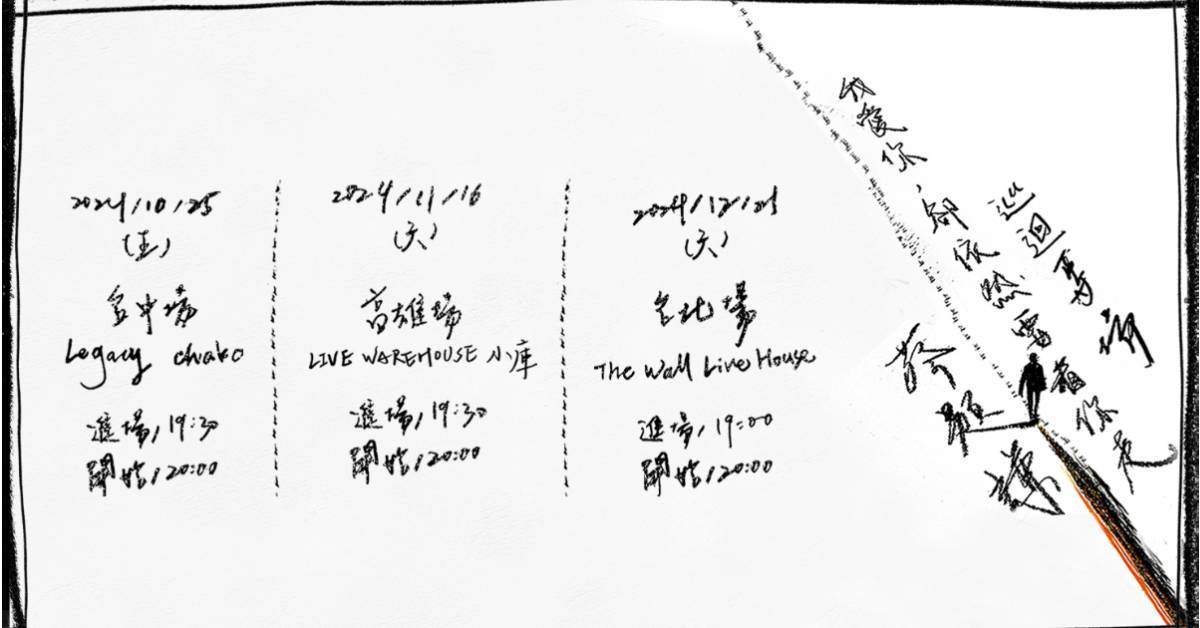 2024/10/25
(五)
台中場
Legacy
進場/19:30
開始/20:00
2024/11/16
(六)
高雄場
LIVE WAREHOUSE 小庫
進場/19:30
開始/20:00
2024/12/21
(六)
台北場
The Wall Live House
進場/19:00
開始/20:00
我愛你,卻依然你走
巡迴專場